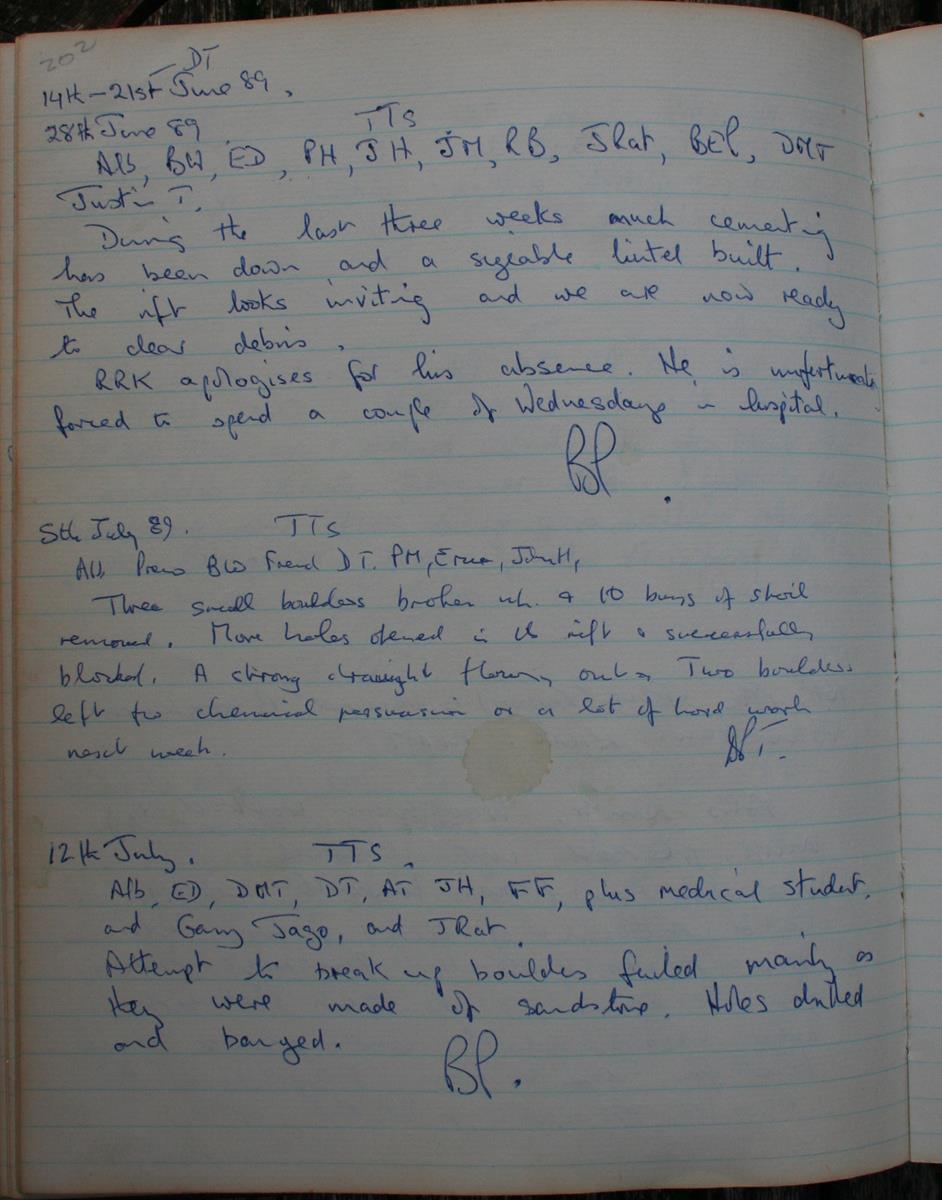 202
DT
14th - 21st June 89.
28th June 89 TTS
Alb, BW, ED, PH, JH, JM, RB, JRat, BEP, DMT
Justin T.
During the last three weeks much cementing
has been down and a sizeable lintel built.
The rift looks inviting and we are now ready
to clear debris.
RRK apologises for his absence. He is unfortunately
forced to spend a couple of Wednesdays in hospital.
BP.
5th July 89. TTS
Alb Prew BW Friend DT. PH, JohnH,
Three small boulders broken up. & 10 bags of spoil
removed. More holes opened in the rift & successfully
blocked. A strong draught flowing out. Two boulders
left for chemical persuasion or a lot of hard work
next week. DT.
12th July. TTS.
Alb, ED, DMT, DT, AT JH, FF, plus medical student.
and Gary Jago, and JRat.
Attempt to break up boulders failed mainly as
they were made of sandstone. Holes drilled
and banged. BP.